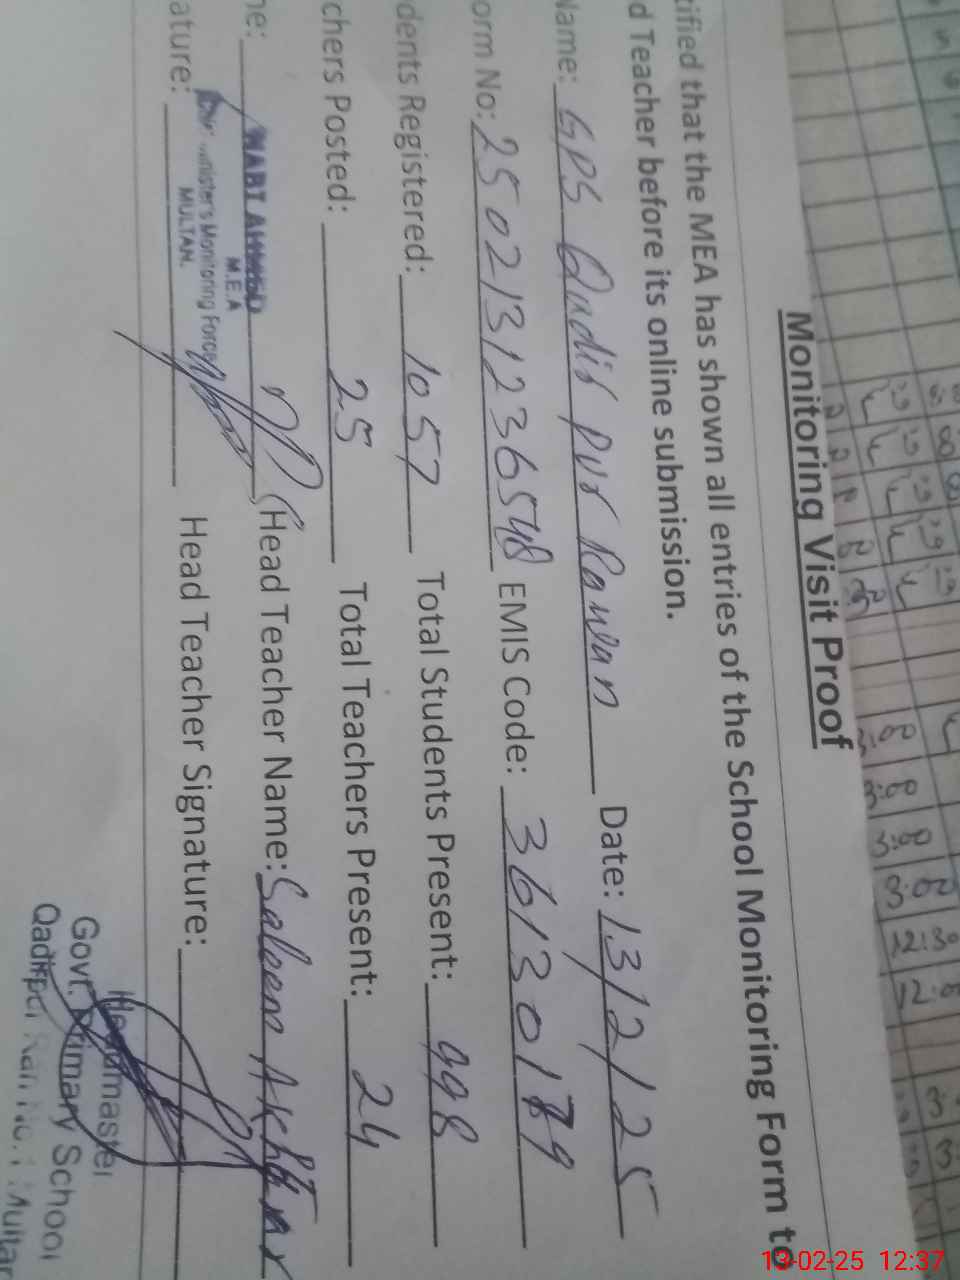 Monitoring Visit Proof
tified that the MEA has shown all entries of the School Monitoring Form to
d Teacher before its online submission.
Name: GPS Qadir pur Rawan Date: 13/2/25
orm No: 2502131236548 EMIS Code: 36130179
dents Registered: 1057 Total Students Present: 998
chers Posted: 25 Total Teachers Present: 24
ne: NABI AHMED Head Teacher Name: Saleem Akhtar
M.E.A
Chief Minister's Monitoring Force
MULTAN.
ature: Head Teacher Signature:
Headmaster
Govt. Primary School
Qadirpur Ran No.1 Multan
3:00
3:00
3:00
3:00
12:30
12:00
13-02-25 12:37